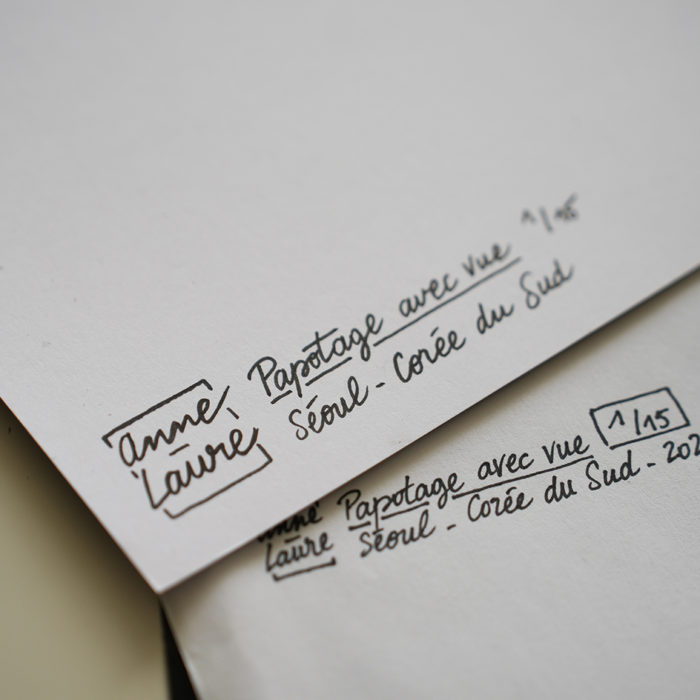 Papotage avec vue 1/15
Séoul - Corée du Sud
anne
Laure
Papotage avec vue 1/15
Séoul - Corée du Sud - 202
anne
Laure